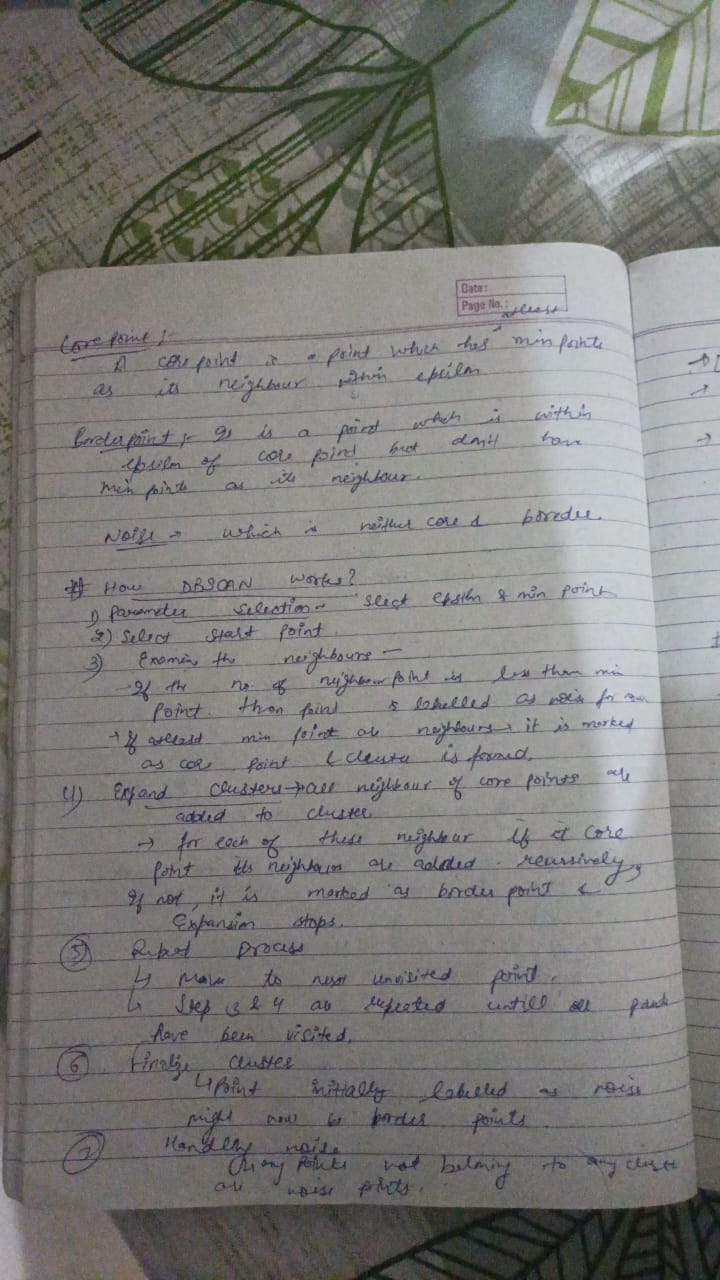 Date:
Page No.:
Core point :-
atleast
A core point is a point which has min points
as its neighbour within epsilon
Border point :- It is a point which is within
epsilon of core point but don't have
min points as its neighbour.
Noise → which is neither core & boredee.
# How DBSCAN works?
1) parameter selection → slect epsiln & min point
2) Select start point.
3) Examin the neighbours -
- If the no. of neighbour point is less than min
point. then point is labelled as nois for now
→ If atleast min point are neighbours → it is marked
as core point & cluster is formed.
4) Expand clusters → all neighbour of core points are
added to cluster
→ for each of these neighbour if it core
point its neighbours are added recursively,
If not, it is marked as border point &
Expansion stops.
5) Repeat process
↳ Move to next unvisited point.
↳ Step 3 & 4 are repeated untill all points
have been visited.
6) Finalize cluster
↳ Point initially labelled as noise
might now be border points.
7) Handling noise
↳ any points not beloning to any cluster
are noise points.